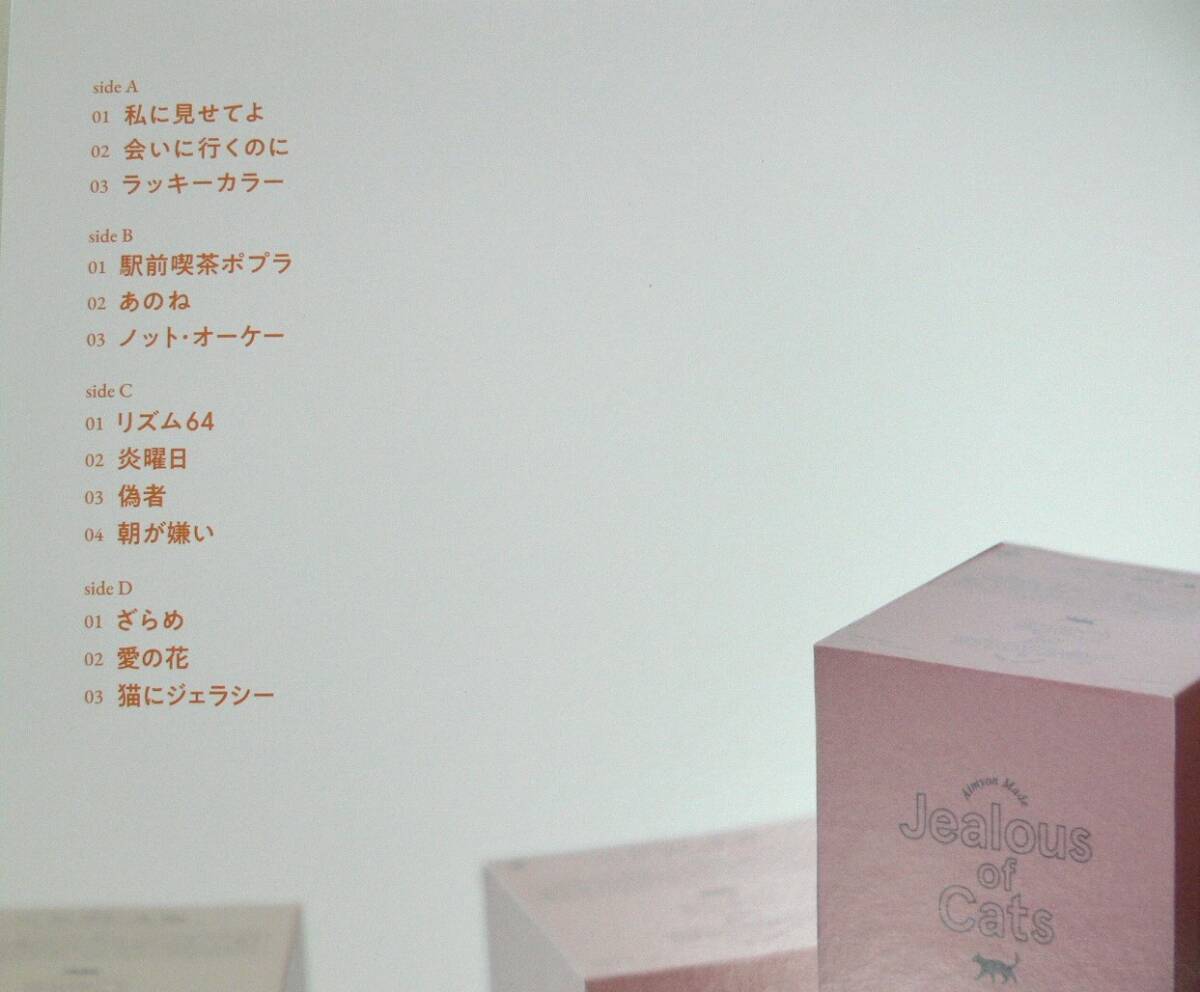 side A
01 私に見せてよ
02 会いに行くのに
03 ラッキーカラー
side B
01 駅前喫茶ポプラ
02 あのね
03 ノット・オーケー
side C
01 リズム64
02 炎曜日
03 偽者
04 朝が嫌い
side D
01 ざらめ
02 愛の花
03 猫にジェラシー
Aimyon Made
Jealous
of
Cats